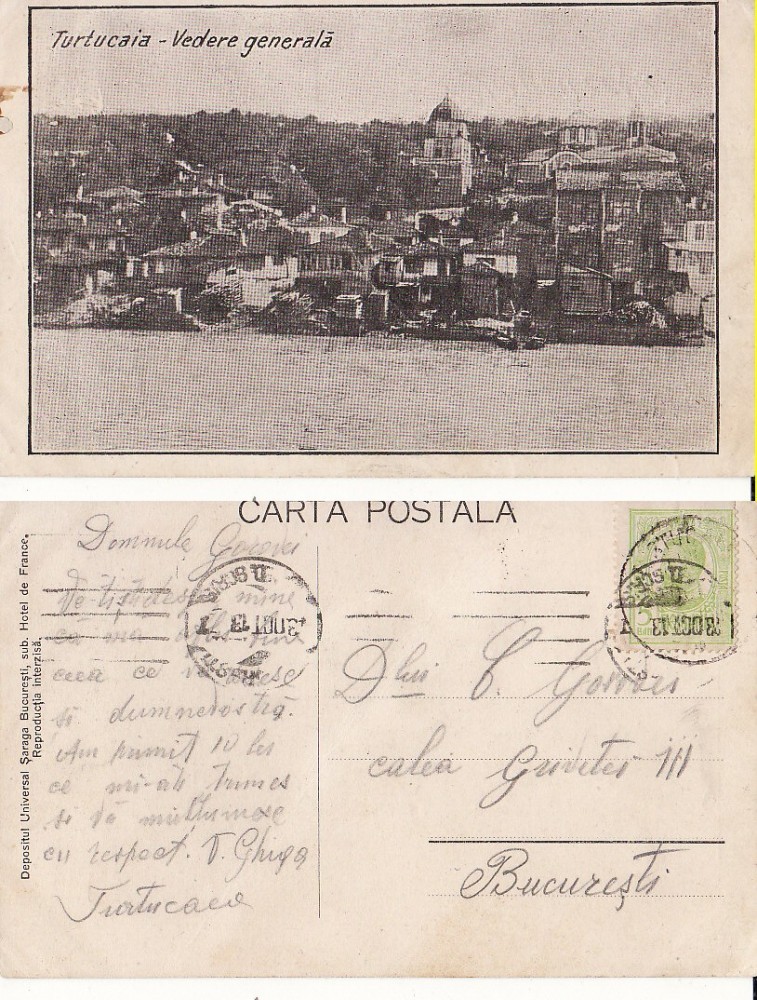 Turtucaia - Vedere generală
CARTA POSTALA
Depositul Universal Șaraga București, sub. Hotel de France.
Reproducția interzisă.
Domnule Gorovei
mine
ceea ce
si dumneavostră.
Am primit 10 lei
ce mi-ati trimes
si vă multumesc
cu respect. Ghiga
Turtucaea
3 OCT 13
3 OCT 13
Dlui C. Gorovei
calea Grivitei 111
București